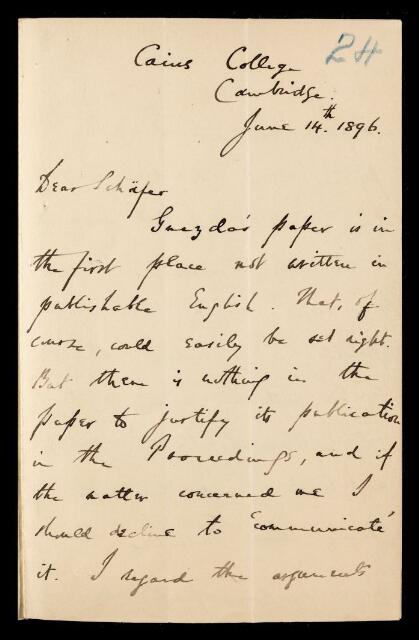 24
Caius College
Cambridge.
June 14th. 1896.
Dear Schäfer
Gnezda's paper is in
the first place not written in
publishable English. That, of
course, could easily be set right.
But there is nothing in the
paper to justify its publication
in the Proceedings, and if
the matter concerned me I
should decline to 'communicate'
it. I regard the arguments